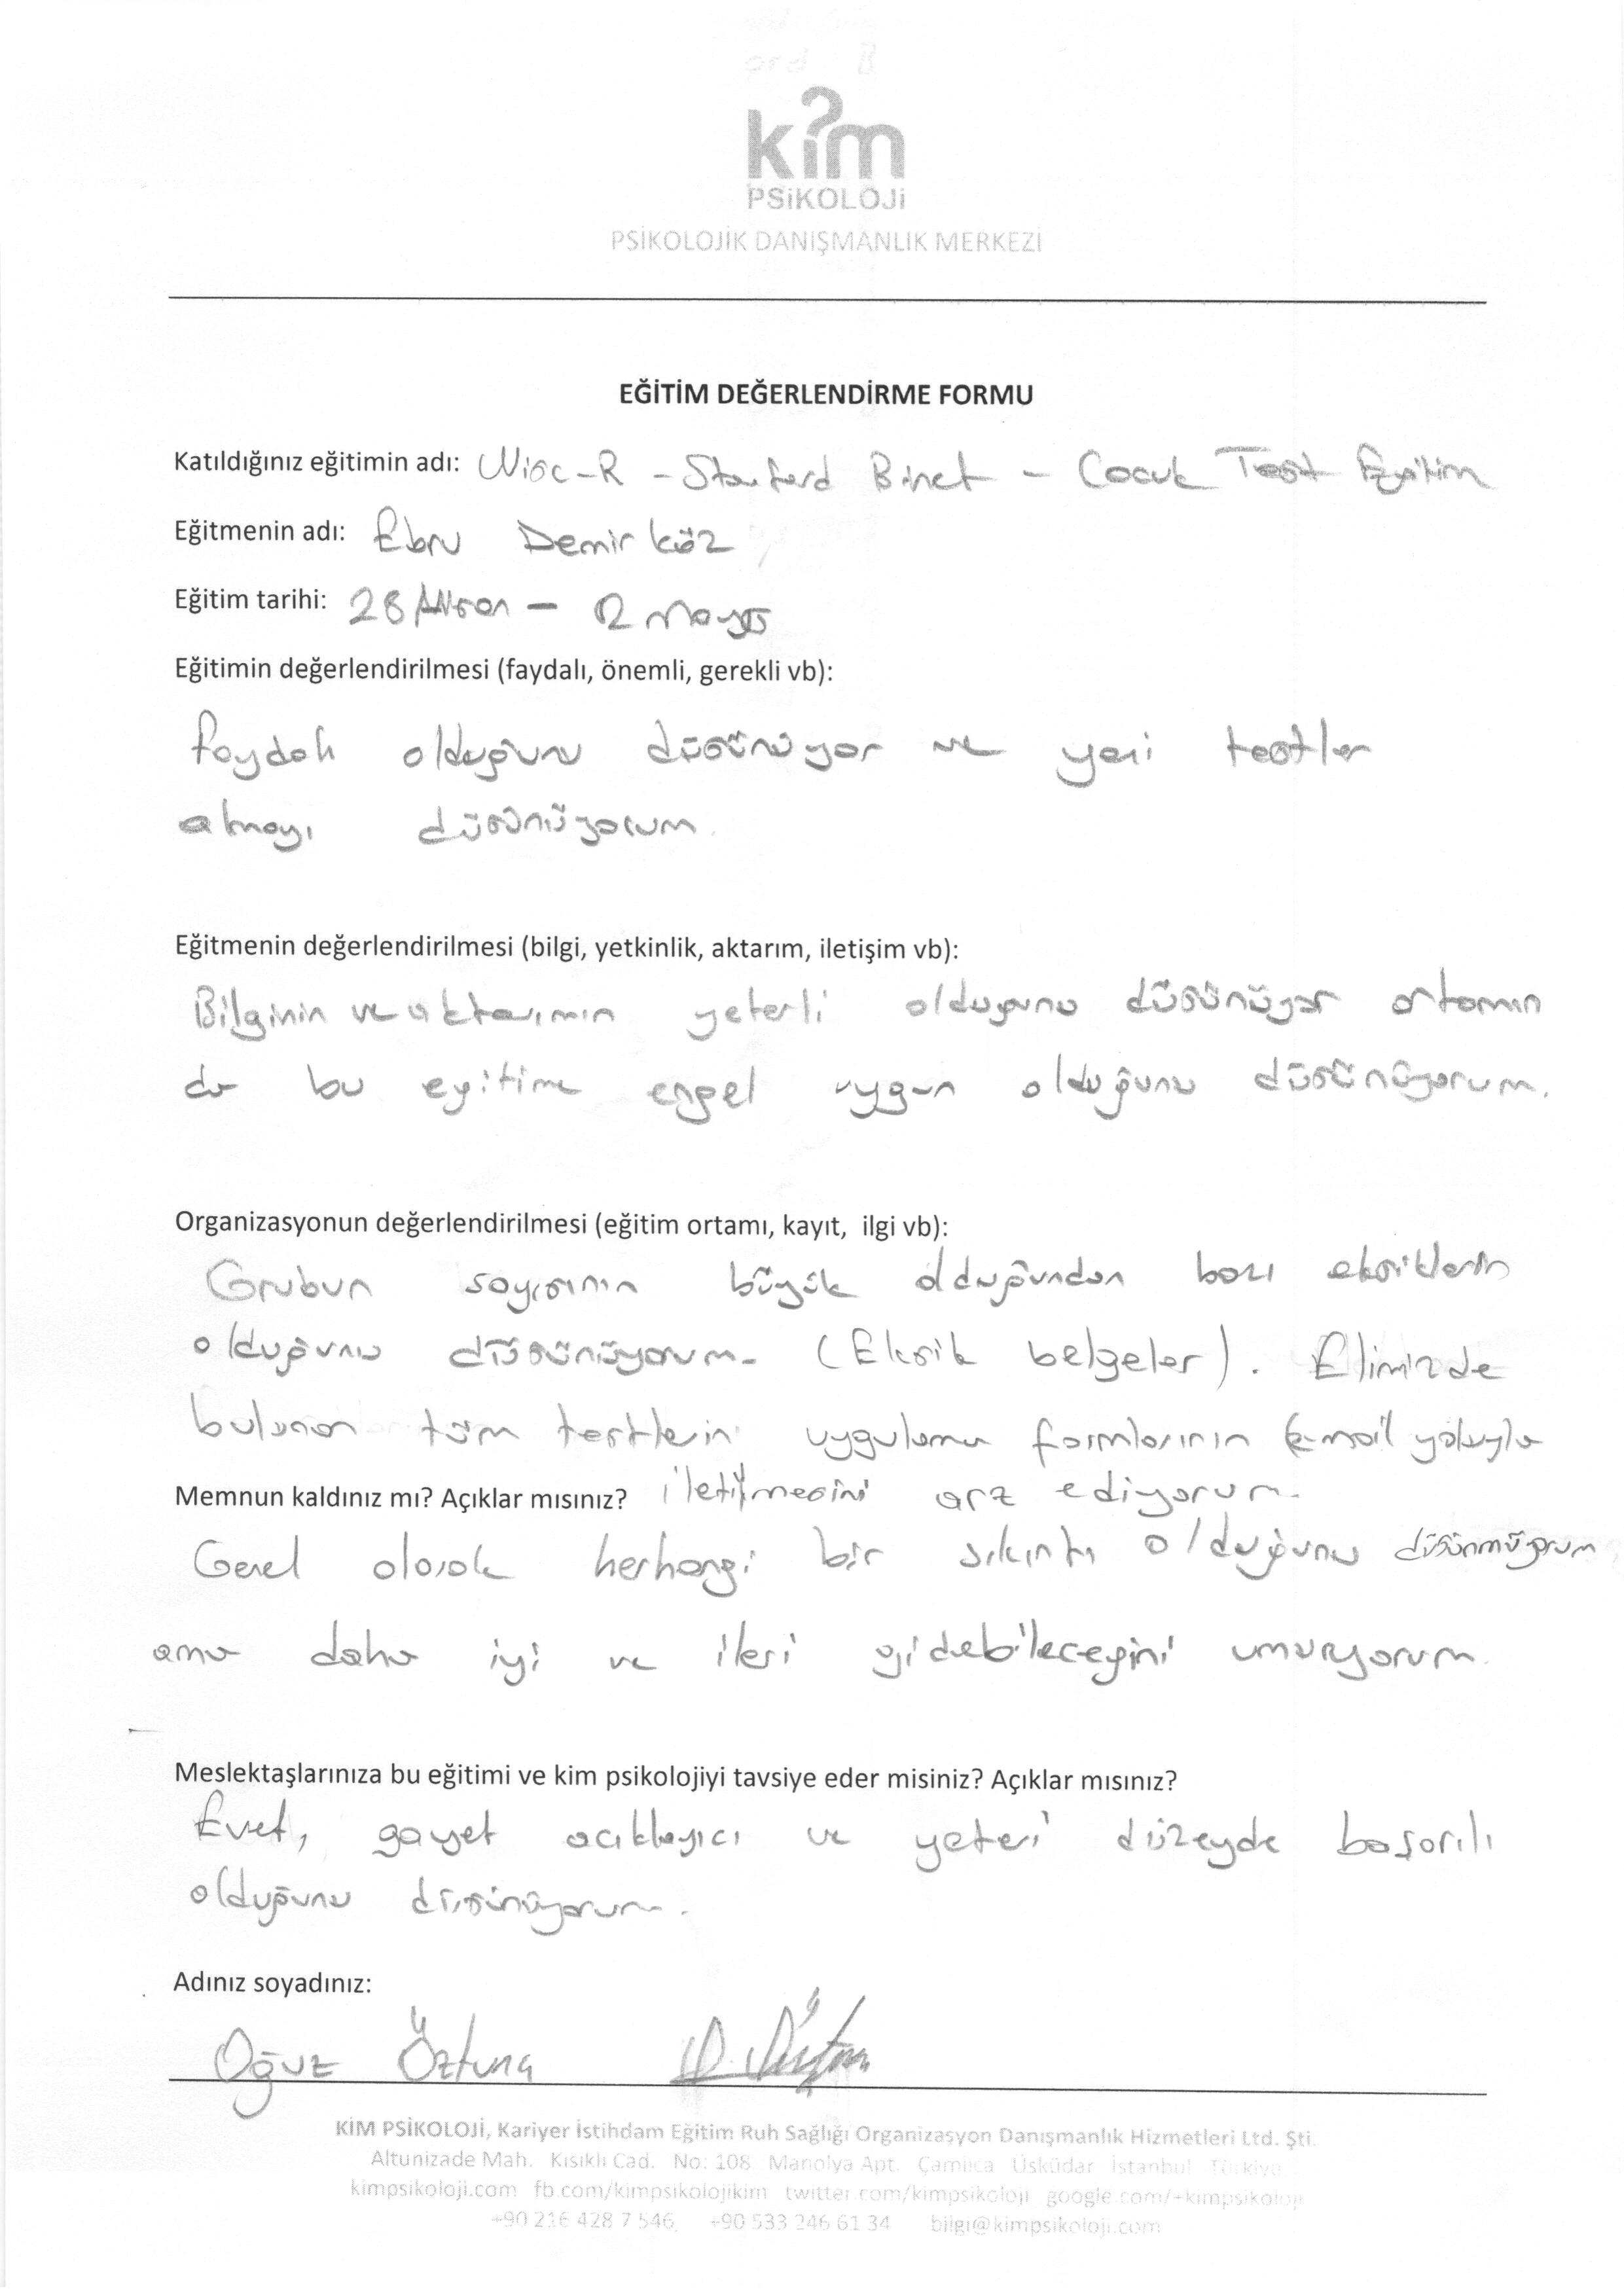 kim
PSiKOLOJi
PSİKOLOJİK DANIŞMANLIK MERKEZİ
EĞİTİM DEĞERLENDİRME FORMU
Katıldığınız eğitimin adı: Wisc-R - Stanford Binet - Cocuk Test Eğitim
Eğitmenin adı: Ebru Demir köz
Eğitim tarihi: 28 Nisan - 12 Mayıs
Eğitimin değerlendirilmesi (faydalı, önemli, gerekli vb):
faydalı olduğunu düsünüyor ve yeni testler
almayı düsünüyorum.
Eğitmenin değerlendirilmesi (bilgi, yetkinlik, aktarım, iletişim vb):
Bilginin ve aktarımın yeterli olduguna düsünüyor ortamın
da bu egitime engel uygun olduğunu düsünüyorum.
Organizasyonun değerlendirilmesi (eğitim ortamı, kayıt, ilgi vb):
Grubun sayısının büyük olduğundan bazı eksiklerin
olduğunu düsünüyorum. (Eksik belgeler). Elimizde
bulunan tüm testlerin uygulama formlarının e-mail yoluyla
Memnun kaldınız mı? Açıklar mısınız? iletilmesini arz ediyorum.
Genel olarak herhangi bir sıkıntı olduğunu düsünmüyorum
ama daha iyi ve ileri gidebileceğini umuyorum.
Meslektaşlarınıza bu eğitimi ve kim psikolojiyi tavsiye eder misiniz? Açıklar mısınız?
Evet, gayet acıklayıcı ve yeteri düzeyde başarılı
olduğunu düsünüyorum.
Adınız soyadınız:
Oğuz Öztuna
KİM PSİKOLOJİ, Kariyer İstihdam Eğitim Ruh Sağlığı Organizasyon Danışmanlık Hizmetleri Ltd. Şti.
Altunizade Mah. Kısıklı Cad. No: 108 Manolya Apt. Çamlıca Üsküdar İstanbul Türkiye
kimpsikoloji.com fb.com/kimpsikolojikim twitter.com/kimpsikoloji google.com/+kimpsikoloji
+90 216 428 7 546, +90 533 246 61 34 bilgi@kimpsikoloji.com